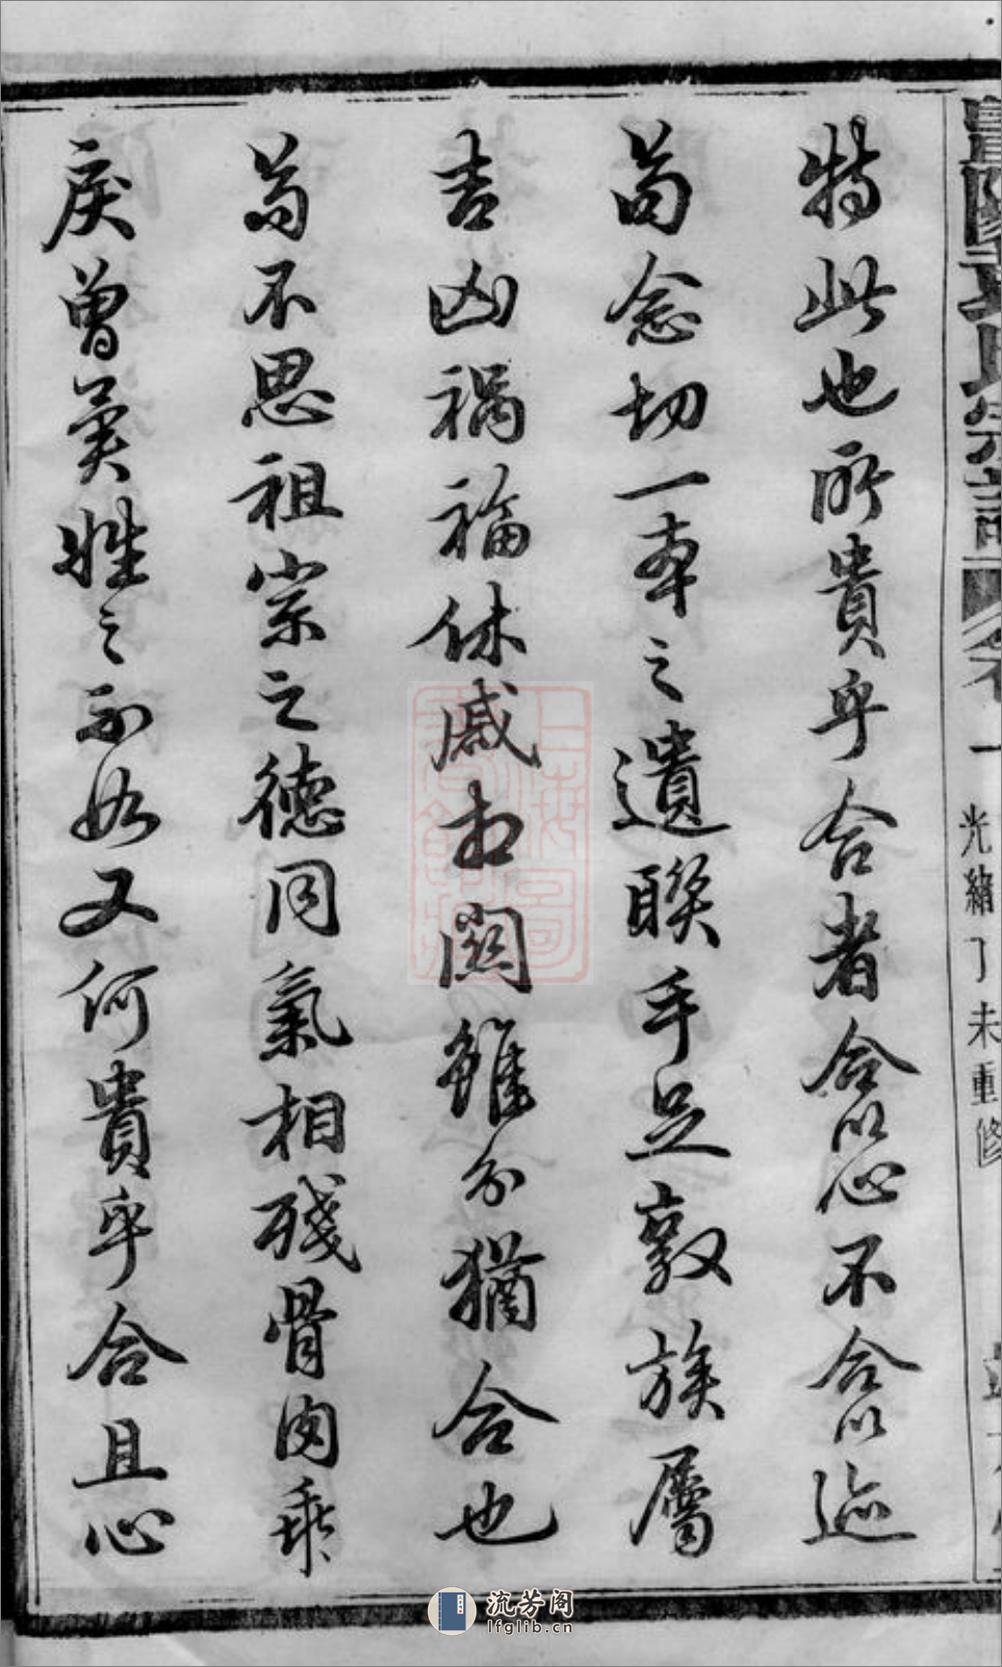 宗譜
卷一
光緒丁未重修
特此也所貴乎合者合以心不合以迹
苟念切一本之遺聯手足敦族屬
吉凶禍福休戚相關雖分猶合也
苟不思祖宗之德同氣相殘骨肉乖
戾曾異姓之不如又何貴乎合且心
流芳阁
lfglib.cn